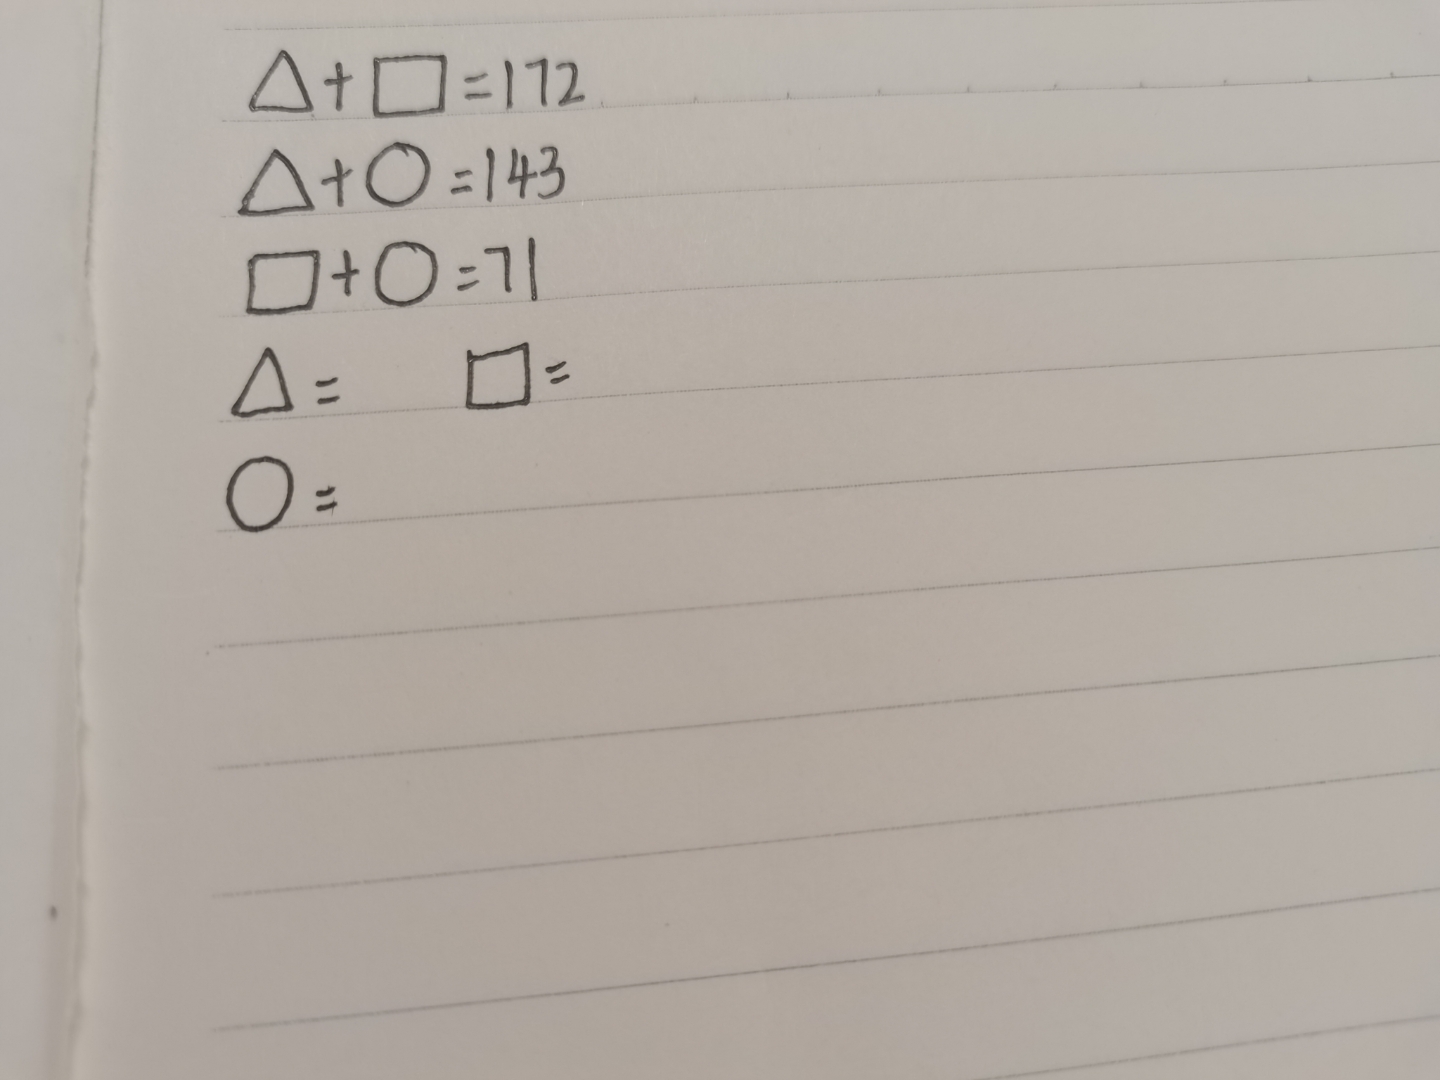 △+□=172
△+○=143
□+○=71
△= □=
○=